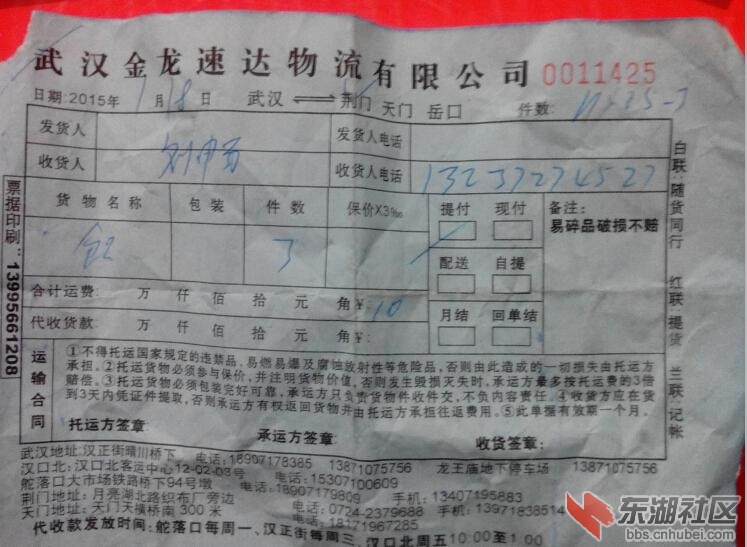 武汉金龙速达物流有限公司 0011425
日期:2015年 1月8日 武汉 荆门 天门 岳口 件数:
发货人 发货人电话
收货人 收货人电话 13237274527
货物名称 包装 件数 保价X3‰ 提付 现付 备注:
易碎品破损不赔
3
配送 自提
合计运费: 万 仟 佰 拾 元 角 ¥:10
代收货款: 万 仟 佰 拾 元 角 ¥:
月结 回单结
运输合同
①不得托运国家规定的违禁品,易燃易爆及腐蚀放射性等危险品,否则由此造成的一切损失由托运方
承担。②托运货物必须参与保价,并注明货物价值,否则发生毁损灭失时,承运方最多按托运费的3倍
赔偿。③托运货物必须包装完好可靠,承运方只负责货物件收件交,不负内容责任。④收货方应在货
到3天内凭证件提取,否则承运方有权返回货物并由托运方承担往返费用。⑤此单据有效期一个月。
托运方签章: 承运方签章: 收货签章:
武汉地址:汉正街晴川桥下 电话:18907178385 13871075756 龙王庙地下停车场 13871075756
汉口北:汉口北客运中心12-02-03号 电话:15307100609
舵落口大市场铁路桥下94号墩 电话:18907179809 手机:13407195883
荆门地址:月亮湖北路织布厂旁边 电话:0724-2379688 手机:13971838514
天门地址:天门天横桥南300米 电话:18171967285
代收款发放时间:舵落口每周一、汉正街每周三、汉口北周五10:00至1:00
票据印刷:13995661208
白联:随货同行 红联:提货 兰联:记帐
东湖社区
bbs.cnhubei.com